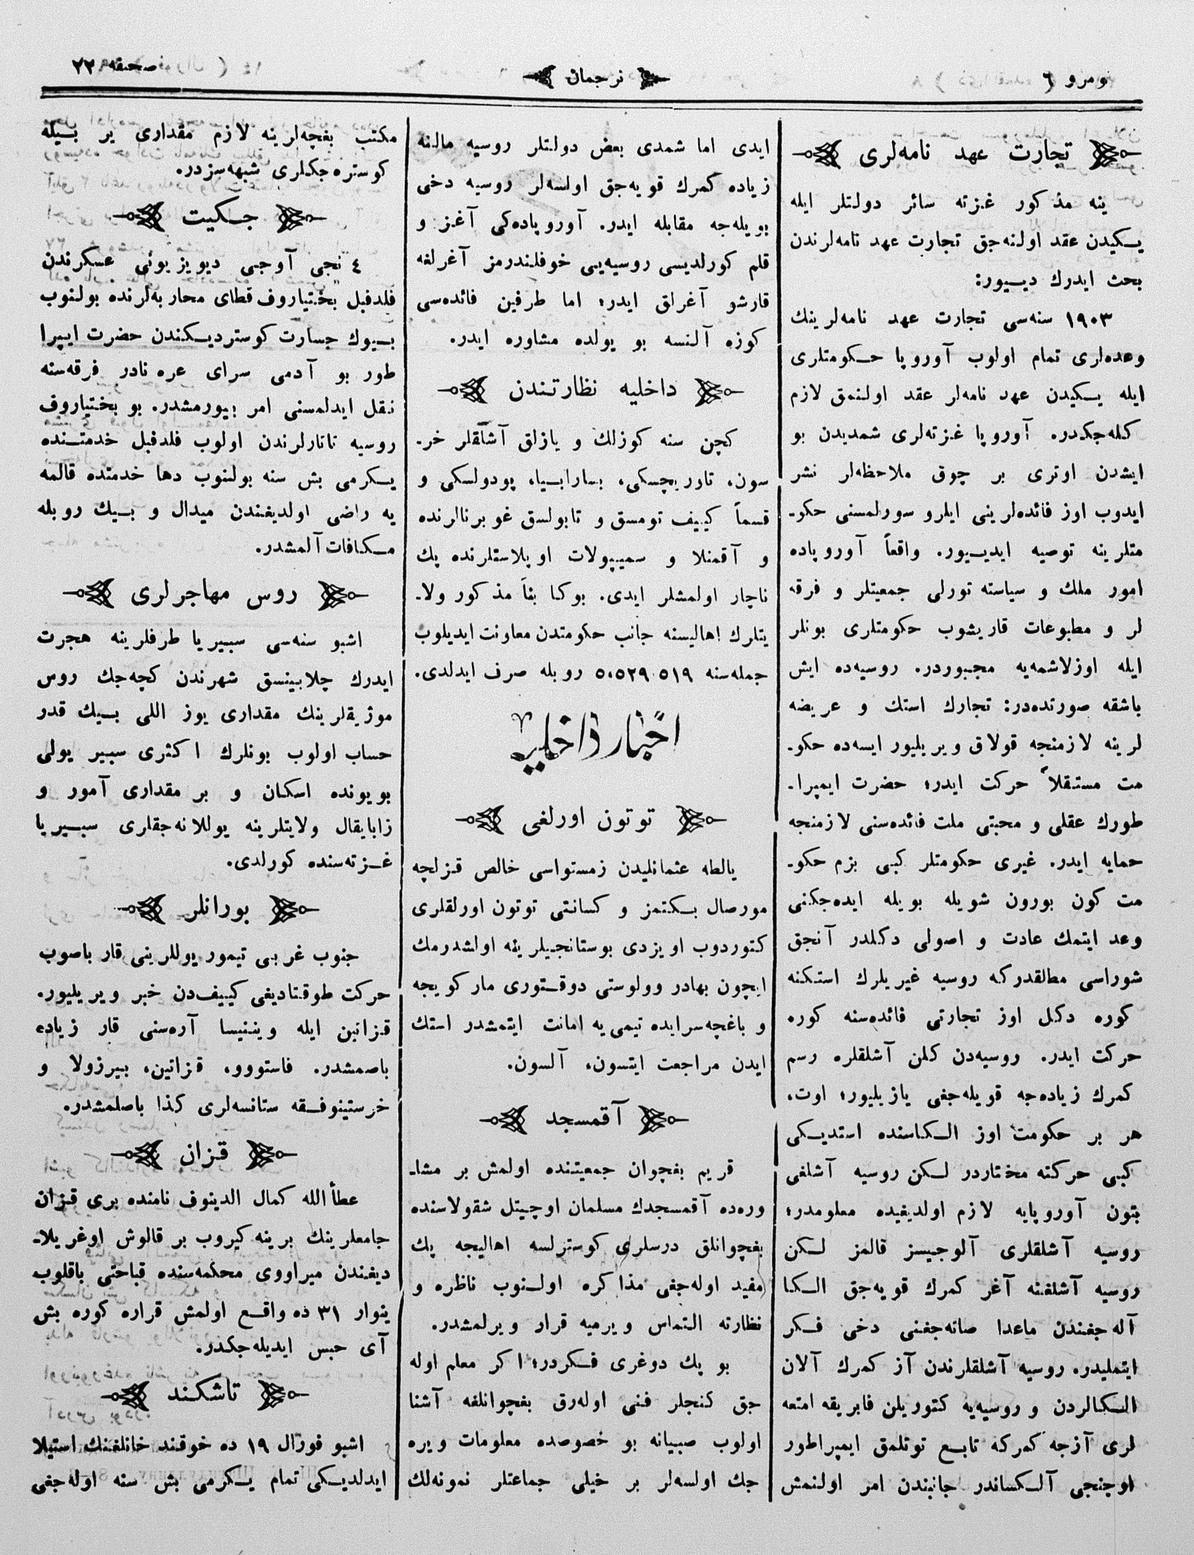 نومرو ٦
ترجمان
صحیفه ٢٢
تجارت عهد نامه‌لری
ینه مذکور غزته سائر دولتلر ایله
یکیدن عقد اولنه‌جق تجارت عهد نامه‌لرندن
بحث ایدرك دییور:
١٩٠٣ سنه‌سی تجارت عهد نامه‌لرینك
وعده‌لری تمام اولوب آوروپا حکومتلری
ایله یکیدن عهد نامه‌لر عقد اولنمق لازم
کله‌جکدر. آوروپا غزته‌لری شمدیدن بو
ایشدن اوتری بر چوق ملاحظه‌لر نشر
ایدوب اوز فائده‌لرینی ایلرو سورلمسنی حکو-
متلرینه توصیه ایدییور. واقعاً آوروپاده
امور ملك و سیاسته تورلی جمعیتلر و فرقه
لر و مطبوعات قاریشوب حکومتلری بونلر
ایله اوزلاشمه‌یه مجبوردر. روسیه‌ده ایش
باشقه صورتده‌در: تجارك استك و عریضه
لرینه لازمنجه قولاق ویریلیور ایسه‌ده حکو-
مت مستقلاً حرکت ایدر؛ حضرت ایمپرا-
طورك عقلی و محبتی ملت فائده‌سنی لازمنجه
حمایه ایدر. غیری حکومتلر کبی بزم حکو-
مت کون بورون شویله بویله ایده‌جکنی
وعد ایتمك عادت و اصولی دکلدر آنجق
شوراسی مطالقدرکه روسیه غیریلرك استکنه
کوره دکل اوز تجارتی فائده‌سنه کوره
حرکت ایدر. روسیه‌دن کلن آشلقلره رسم
کمرك زیاده‌جه قویله‌جغی یازیلیور؛ اوت،
هر بر حکومت اوز الکاسنده استدیکی
کبی حرکته مختاردر لکن روسیه آشلغی
بتون آوروپایه لازم اولدیغیده معلومدر؛
روسیه آشلقلری آلوجیسز قالمز لکن
روسیه آشلغنه آغر کمرك قویه‌جق الکا
آله‌جغندن ماعدا صانه‌جغنی دخی فکر
ایتملیدر. روسیه آشلقلرندن آز کمرك آلان
الکالردن و روسیه‌یه کتوریلن فابریقه امتعه
لری آزجه کمرکه تابع توتلمق ایمپراطور
اوچنجی آلکساندر جانبندن امر اولنمش
ایدی اما شمدی بعض دولتلر روسیه مالنه
زیاده کمرك قویه‌جق اولسه‌لر روسیه دخی
بویله‌جه مقابله ایدر. آوروپاده‌کی آغز و
قلم کورلدیسی روسیه‌یی خوفلندرمز آغرلغه
قارشو آغرلق ایدر؛ اما طرفین فائده‌سی
کوزه آلنسه بو یولده مشاوره ایدر.
داخلیه نظارتندن
کچن سنه کوزلك و یازلق آشلقلر خر-
سون، تاوریچسکی، بسارابیا، پودولسکی و
قسماً کییف تومسق و تابولسق غوبرنالرنده
و آقمنلا و سمیپولات اوبلاستلرنده پك
ناچار اولمشلر ایدی. بوکا بناً مذکور ولا-
یتلرك اهالیسنه جانب حکومتدن معاونت ایدیلوب
جمله‌سنه ٥،٥٢٩،٥١٩ روبله صرف ایدلدی.
اخبار داخلیه
توتون اورلغی
یالطه عثمانلیدن زمستواسی خالص قزلچه
مورصال بکتمز و کسانتی توتون اورلقلری
کتوردوب اویزدی بوستانجیلرینه اولشدرمك
ایچون بهادر وولوستی دوقتوری مارکویچه
و باغچه‌سرایده تیمی یه امانت ایتمشدر استك
ایدن مراجعت ایتسون، آلسون.
آقمسجد
قریم بغچوان جمعیتنده اولمش بر مشا-
وره‌ده آقمسجدك مسلمان اوچیتل شقولاسنده
بغچوانلق درسلری کوسترلسه اهالیجه پك
مفید اوله‌جغی مذاکره اولنوب ناظره و
نظارته التماس ویرمیه قرار ویرلمشدر.
بو پك دوغری فکردر؛ اکر معلم اوله
جق کنجلر فنی اوله‌رق بغچوانلغه آشنا
اولوب صبیانه بو خصوصده معلومات ویره
جك اولسه‌لر بر خیلی جماعتلر نمونه‌لك
مکتب بغچه‌لرینه لازم مقداری یر بیله
کوستره‌جکلری شبهه‌سزدر.
جکیت
٤ نجی آوجی دیویزیونی عسکرندن
فلدفبل بختیاروف قطای محاربه‌لرنده بولنوب
بیوك جسارت کوستردیکندن حضرت ایپرا
طور بو آدمی سرای عره نادر فرقه‌سنه
نقل ایدلمسنی امر بیورمشدر. بو بختیاروف
روسیه تاتارلرندن اولوب فلدفبل خدمتنده
یکرمی بش سنه بولنوب دها خدمتده قالمه
یه راضی اولدیغندن میدال و بیك روبله
مکافات آلمشدر.
روس مهاجرلری
اشبو سنه‌سی سبیریا طرفلرینه هجرت
ایدرك چلابینسق شهرندن کچه‌جك روس
موژیقلرینك مقداری یوز اللی بیك قدر
حساب اولوب بونلرك اکثری سبیر یولی
بویونده اسکان و بر مقداری آمور و
زابایقال ولایتلرینه یوللانه‌جقلری سبیریا
غزته‌سنده کورلدی.
بورانلر
جنوب غربی تیمور یوللرینی قار باصوب
حرکت طوقتادیغی کییف‌دن خبر ویریلیور.
قزاتین ایله وینیتسا آره‌سنی قار زیاده
باصمشدر. فاستووو، قزاتین، بیرزولا و
خرستینوفقه ستانسه‌لری کذا باصلمشدر.
قزان
عطأالله کمال الدینوف نامنده بری قزان
جامعلرینك برینه کیروب بر قالوش اوغریلا-
دیغندن میراووی محکمه‌سنده قباحتی باقلوب
ینوار ٣١ ده واقع اولمش قراره کوره بش
آی حبس ایدیله‌جکدر.
تاشکند
اشبو فورال ١٩ ده خوقند خانلغنك استیلا
ایدلدیکی تمام یکرمی بش سنه اوله‌جغی